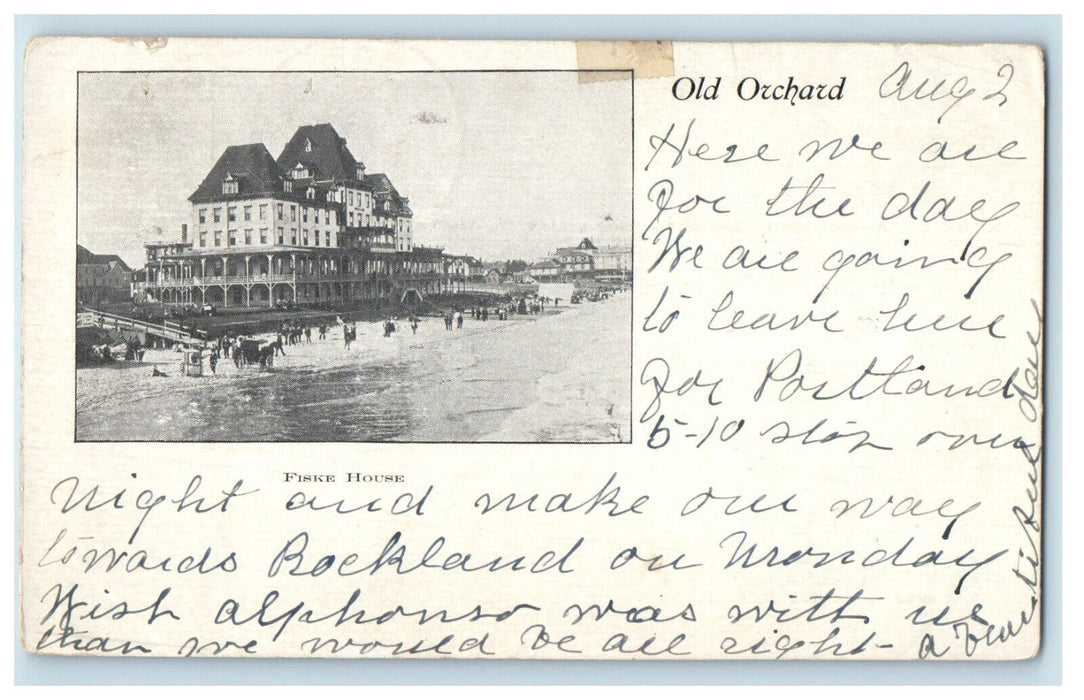 Old Orchard Aug 2
Here we are
for the day
We are going
to leave here
for Portland
5-10 stop over
Fiske House
night and make our way
towards Rockland on Monday
Wish alphonso was with us
than we would be all right-
a beautiful day